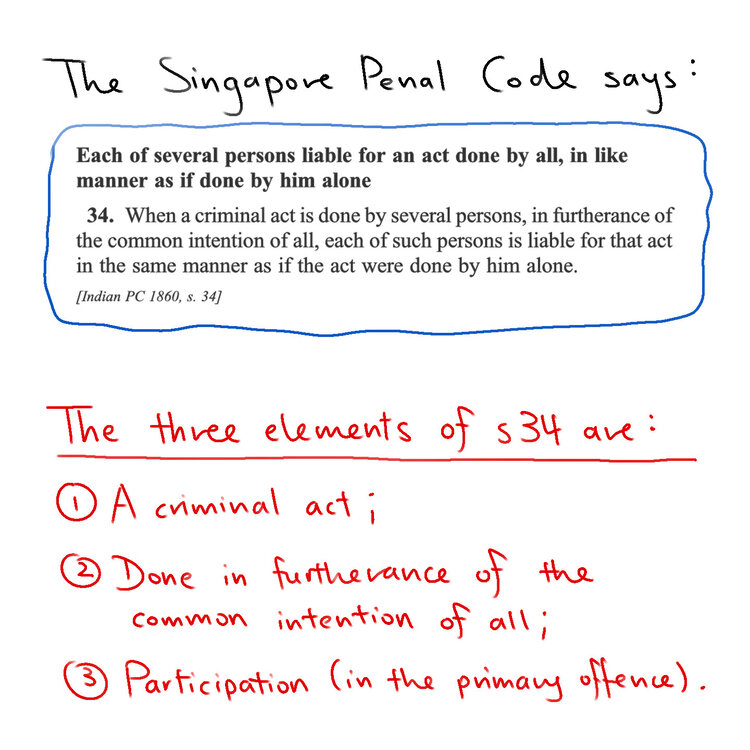 The Singapore Penal Code says:
Each of several persons liable for an act done by all, in like
manner as if done by him alone
34. When a criminal act is done by several persons, in furtherance of
the common intention of all, each of such persons is liable for that act
in the same manner as if the act were done by him alone.
[Indian PC 1860, s. 34]
The three elements of s34 are:
① A criminal act;
② Done in furtherance of the
common intention of all;
③ Participation (in the primary offence).